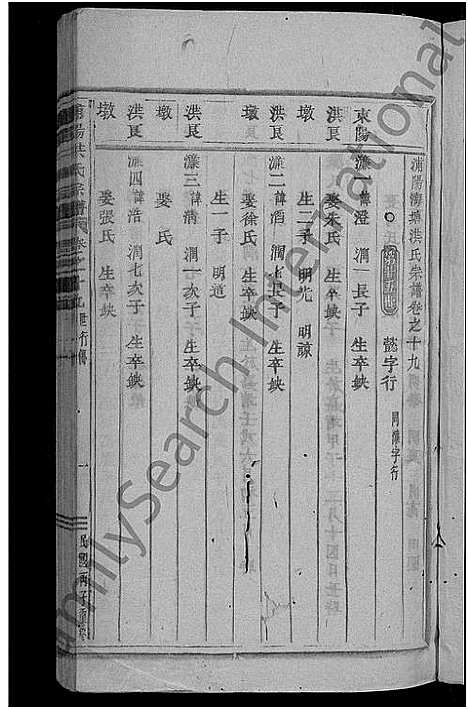 浦陽 洪氏宗譜卷之十九
懿字行
東陽
濂一 諱澄 潤一長子 生卒缺
洪良墩
娶朱氏 生卒缺
生二子 明光 明諒
洪良墩
濂二 諱滔 潤七長子 生卒缺
娶徐氏 生卒缺
生一子 明道
洪良墩
濂三 諱清 潤一次子 生卒缺
娶 氏
洪良墩
濂四 諱浩 潤七次子 生卒缺
娶張氏 生卒缺
浦陽 洪氏宗譜 卷之十九 世行傳 一
民國丙子重修
FamilySearch International